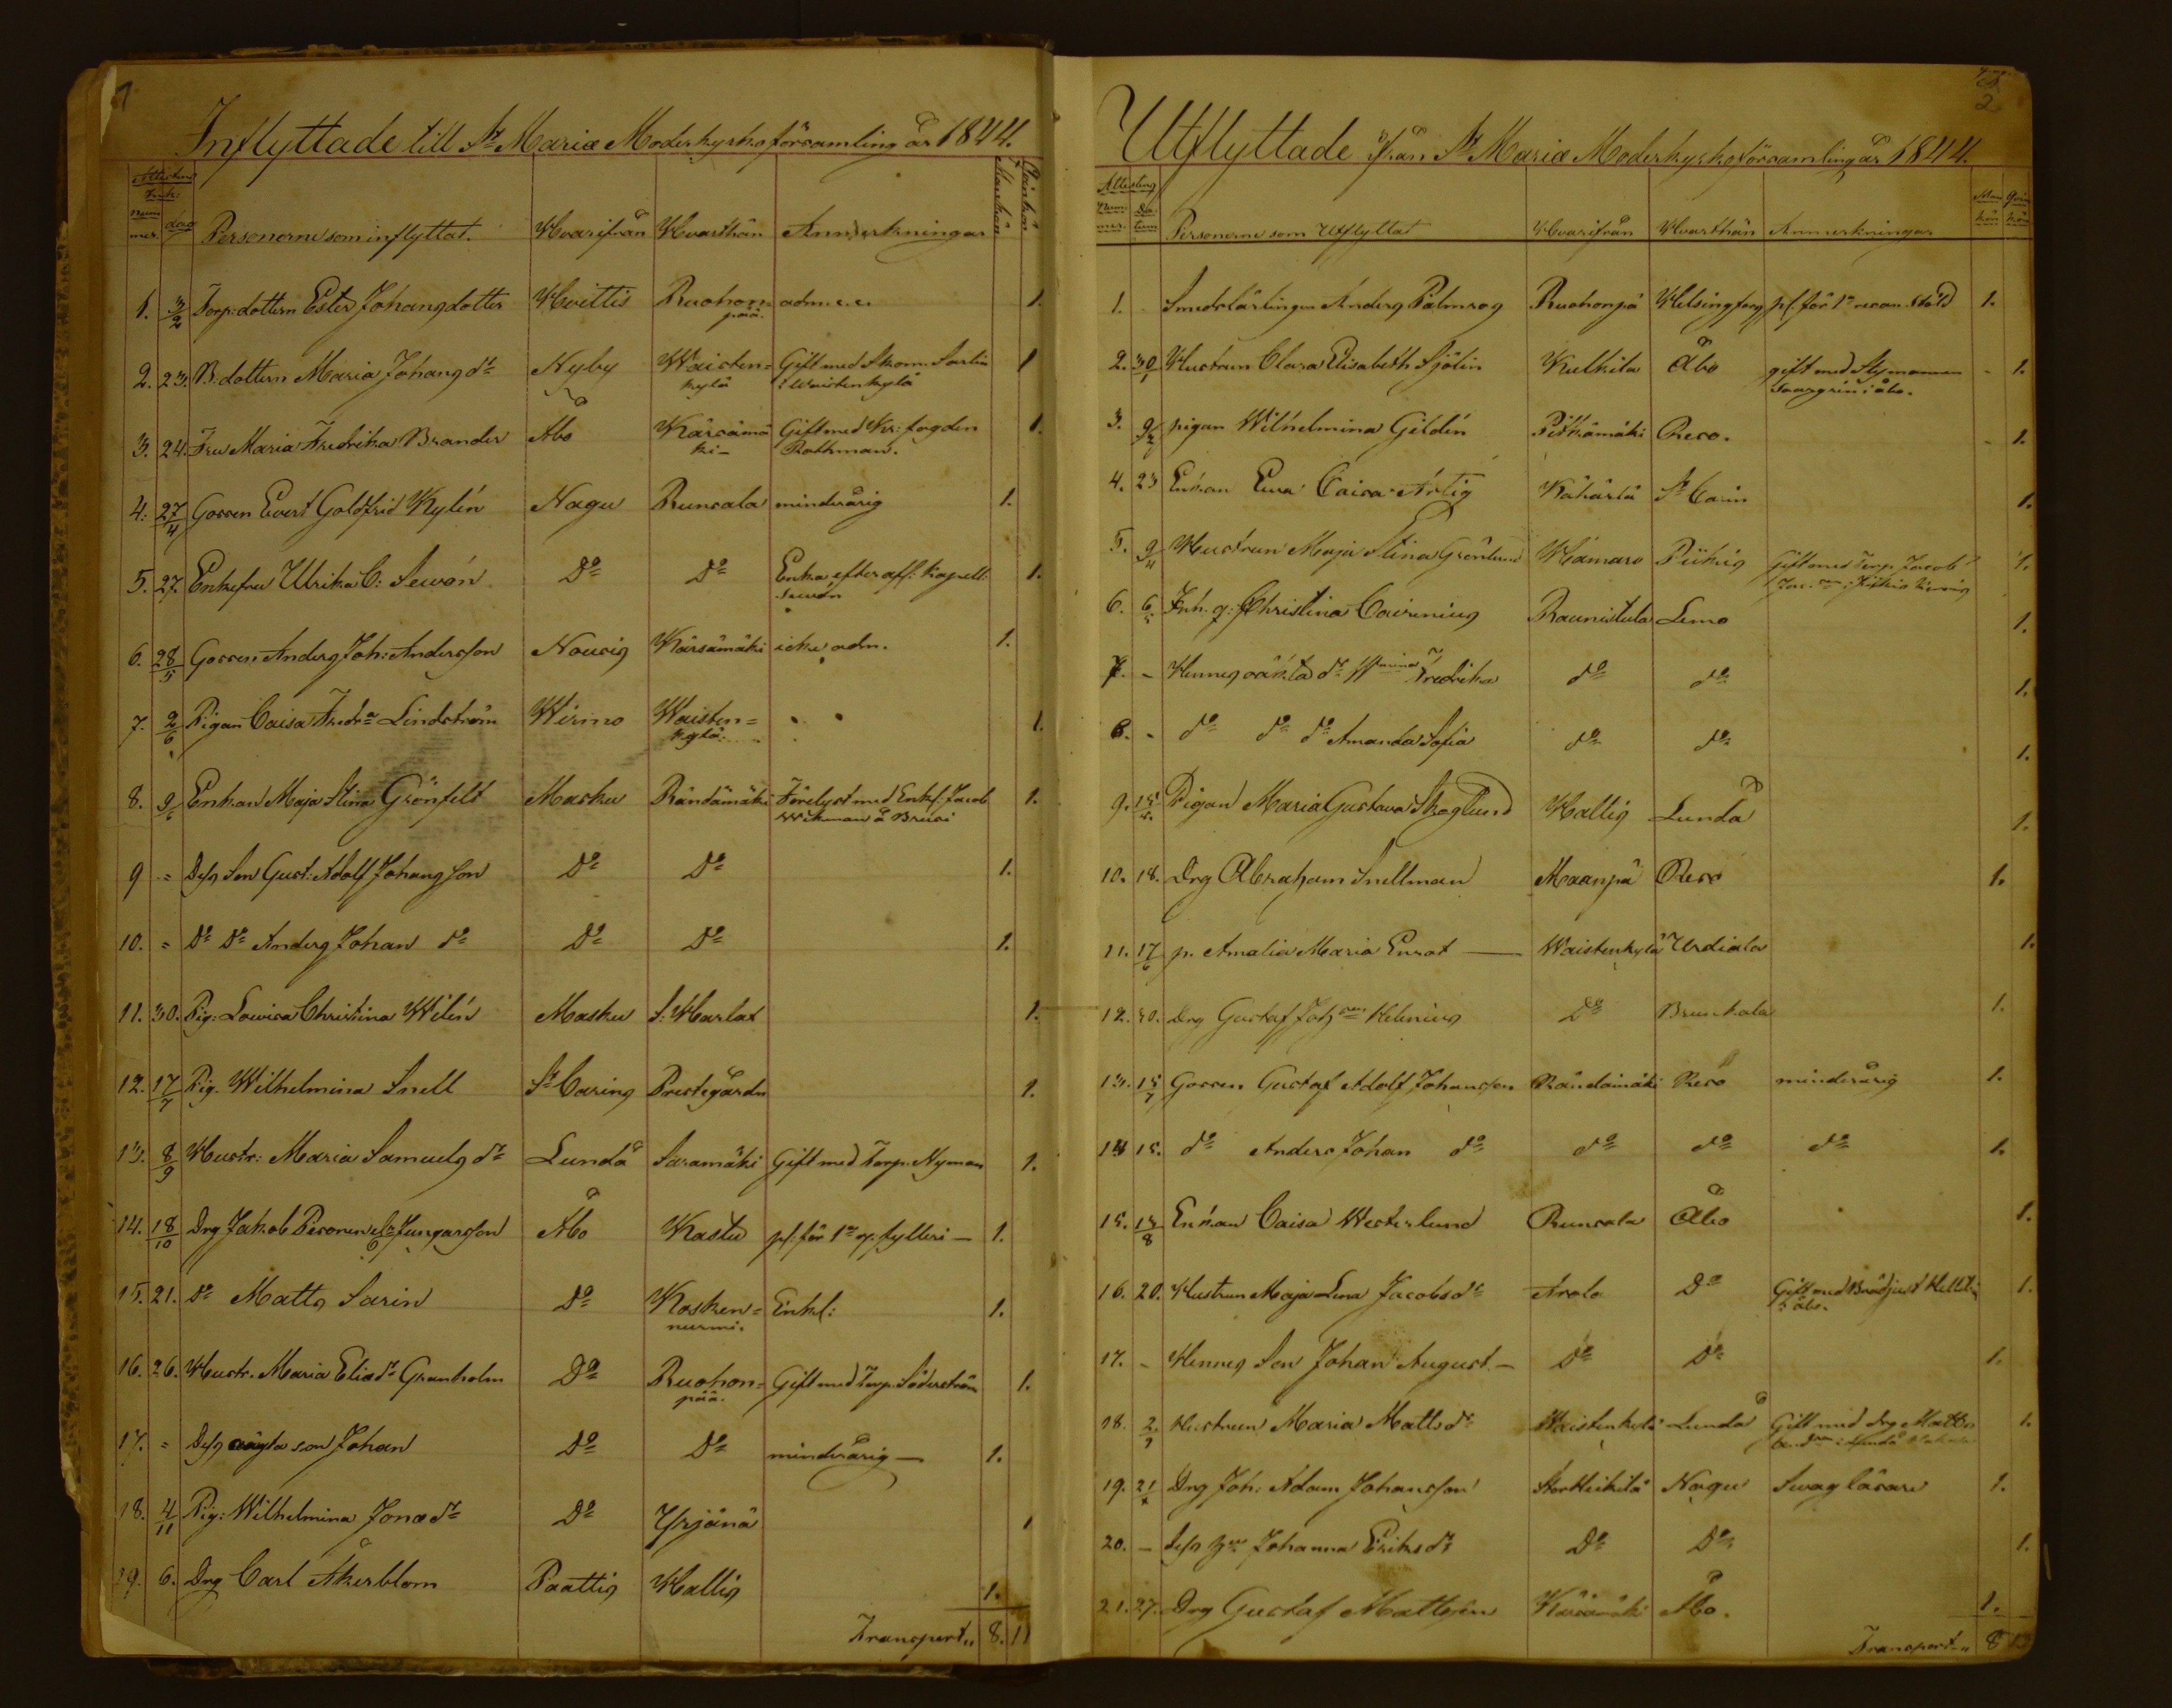 1
Inflyttade till St Mariæ Moderkyrkoförsamling år 1844.
Attestens
num mer. dag Personerne som inflyttat. Hvarifrån Hvarthän Anmerkningar Mankön Qvinkön
1. 3/2 Torp: dottern Ester Johansdotter Hvittis Ruohonpää. adm. c.c. 1.
2. 23. B: dottern Maria Johansdr Nyby Waistenkylä Gift med Skom. Sarlin i Waistenkylä 1
3. 24. Fru Maria Fredrika Brander Åbo Kärsämäki- Gift med Kr: fogden Rothman. 1.
4. 27/4 Gossen Evert Goldfrid Kylén Nagu Runsala minderårig 1.
5. 27. Enkefru Ulrika C: Sewón Do Do Enka efter afl: Kapell: Sewón 1.
6. 28/5 Gossen Anders Joh: Andersson Nousis Kärsämäki icke adm. 1.
7. 2/6 Pigan Caisa Fredra Lindström Wirmo Waistenkylä. 1.
8. 9/ Enkan Maja Stina Grönfelt Masku Räntämäki Förelyst med Enkl: Jacob Wikman å Brusi 1.
9 = Dess Son Gust: Adolf Johansson Do Do 1.
10. = Do Do Anders Johan do Do Do 1.
11. 30. Pig: Lovisa Christina Wilén Masku S: Harlax 1.
12. 17/7 Pig. Wilhelmina Snell St Carins Prestegården 1.
13. 8/9 Hustr: Maria Samuelsdr Lundå Saramäki Gift med Torp. Nyman 1.
14. 18/10 Drg Jakob Pesonen Åbo Kastu pl: för 1a g: fylleri – 1.
15. 21. Do Matts Sarin Do Koskennurmi. Enkl: 1.
16. 26. Hustr. Maria Eliædr Granholm Do Ruohonpää. Gift med Torp. Söderström 1.
17. = Dess oägta son Johan Do Do minderårig – 1.
18. 4/11 Pig: Wilhelmina Jonædr Do Yrjänä 1
19. 6. Drg Carl Åkerblom Paattis Hallis 1.
Transport„ 8. 11
2
Utflyttade ifrån St Mariæ Moderkyrkoförsamling år 1844.
Attestens
Num mer. Da tum Personerne som Utflyttat Hvarifrån Hvarthän Anmerkningar Man kön Qvin kön
1. Smedslärlingen Anders Palmros Ruohonpä Helsingfors pl: för 1a resan stöld 1.
2. 30/1 Hustrun Clara Elisabeth Sjölin Kulkila Åbo gift med Styrmannen i åbo. 1.
3. 9/2 pigan Wilhelmina Gildén Pitkämäki Reso. 1.
4. 23 Enkan Eva Caisa Artig Kähärlä St Carin 1.
5. 9/4 Hustrun Maja Stina Grönlund Hamaro Piikis Gift med Torp. Jacob 1.
6. 6/5 Inh. q: Christina Cairenius Raunistula Lemo 1.
7. - Hennes oäkta dr Wmina Fredrika do do 1.
8. - do do do Amanda Sofia do do 1.
9. 15. Pigan Maria Gustava Skoglund Hallis Lundå 1.
10. 18. Drg Abraham Snellman Maanpä Reso 1.
11. 17/6 p. Amalia Maria Enrot — Waistenkylä Urdiala 1.
12. 30. Drg Gustaf Johson Helenius Do Brunkala 1.
13. 15/7 Gossen Gustaf Adolf Johansson Rändämäki Reso minderårig 1.
14 15. do Anders Johan do do do do 1.
15. 15/8 Enkan Caisa Westerlund Runsala Åbo 1.
16. 20. Hustrun Maja Lena Jacobsdr Arola Do Gift med i åbo. 1.
17. - Hennes Son Johan August - Do Do 1.
18. 2/9 Hustrun Maria Mattsdr Waistenkylä Lundå Gift med drg Matts 1.
19. 21/ Drg Joh: Adam Johansson Storheikilä Nagu Svag läsare 1.
20. – Dess Johanna Eriksdr Do Do 1.
21. 27. Drg Gustaf Mattsson Kärsämäki Åbo. 1.
Transport„ 8 13